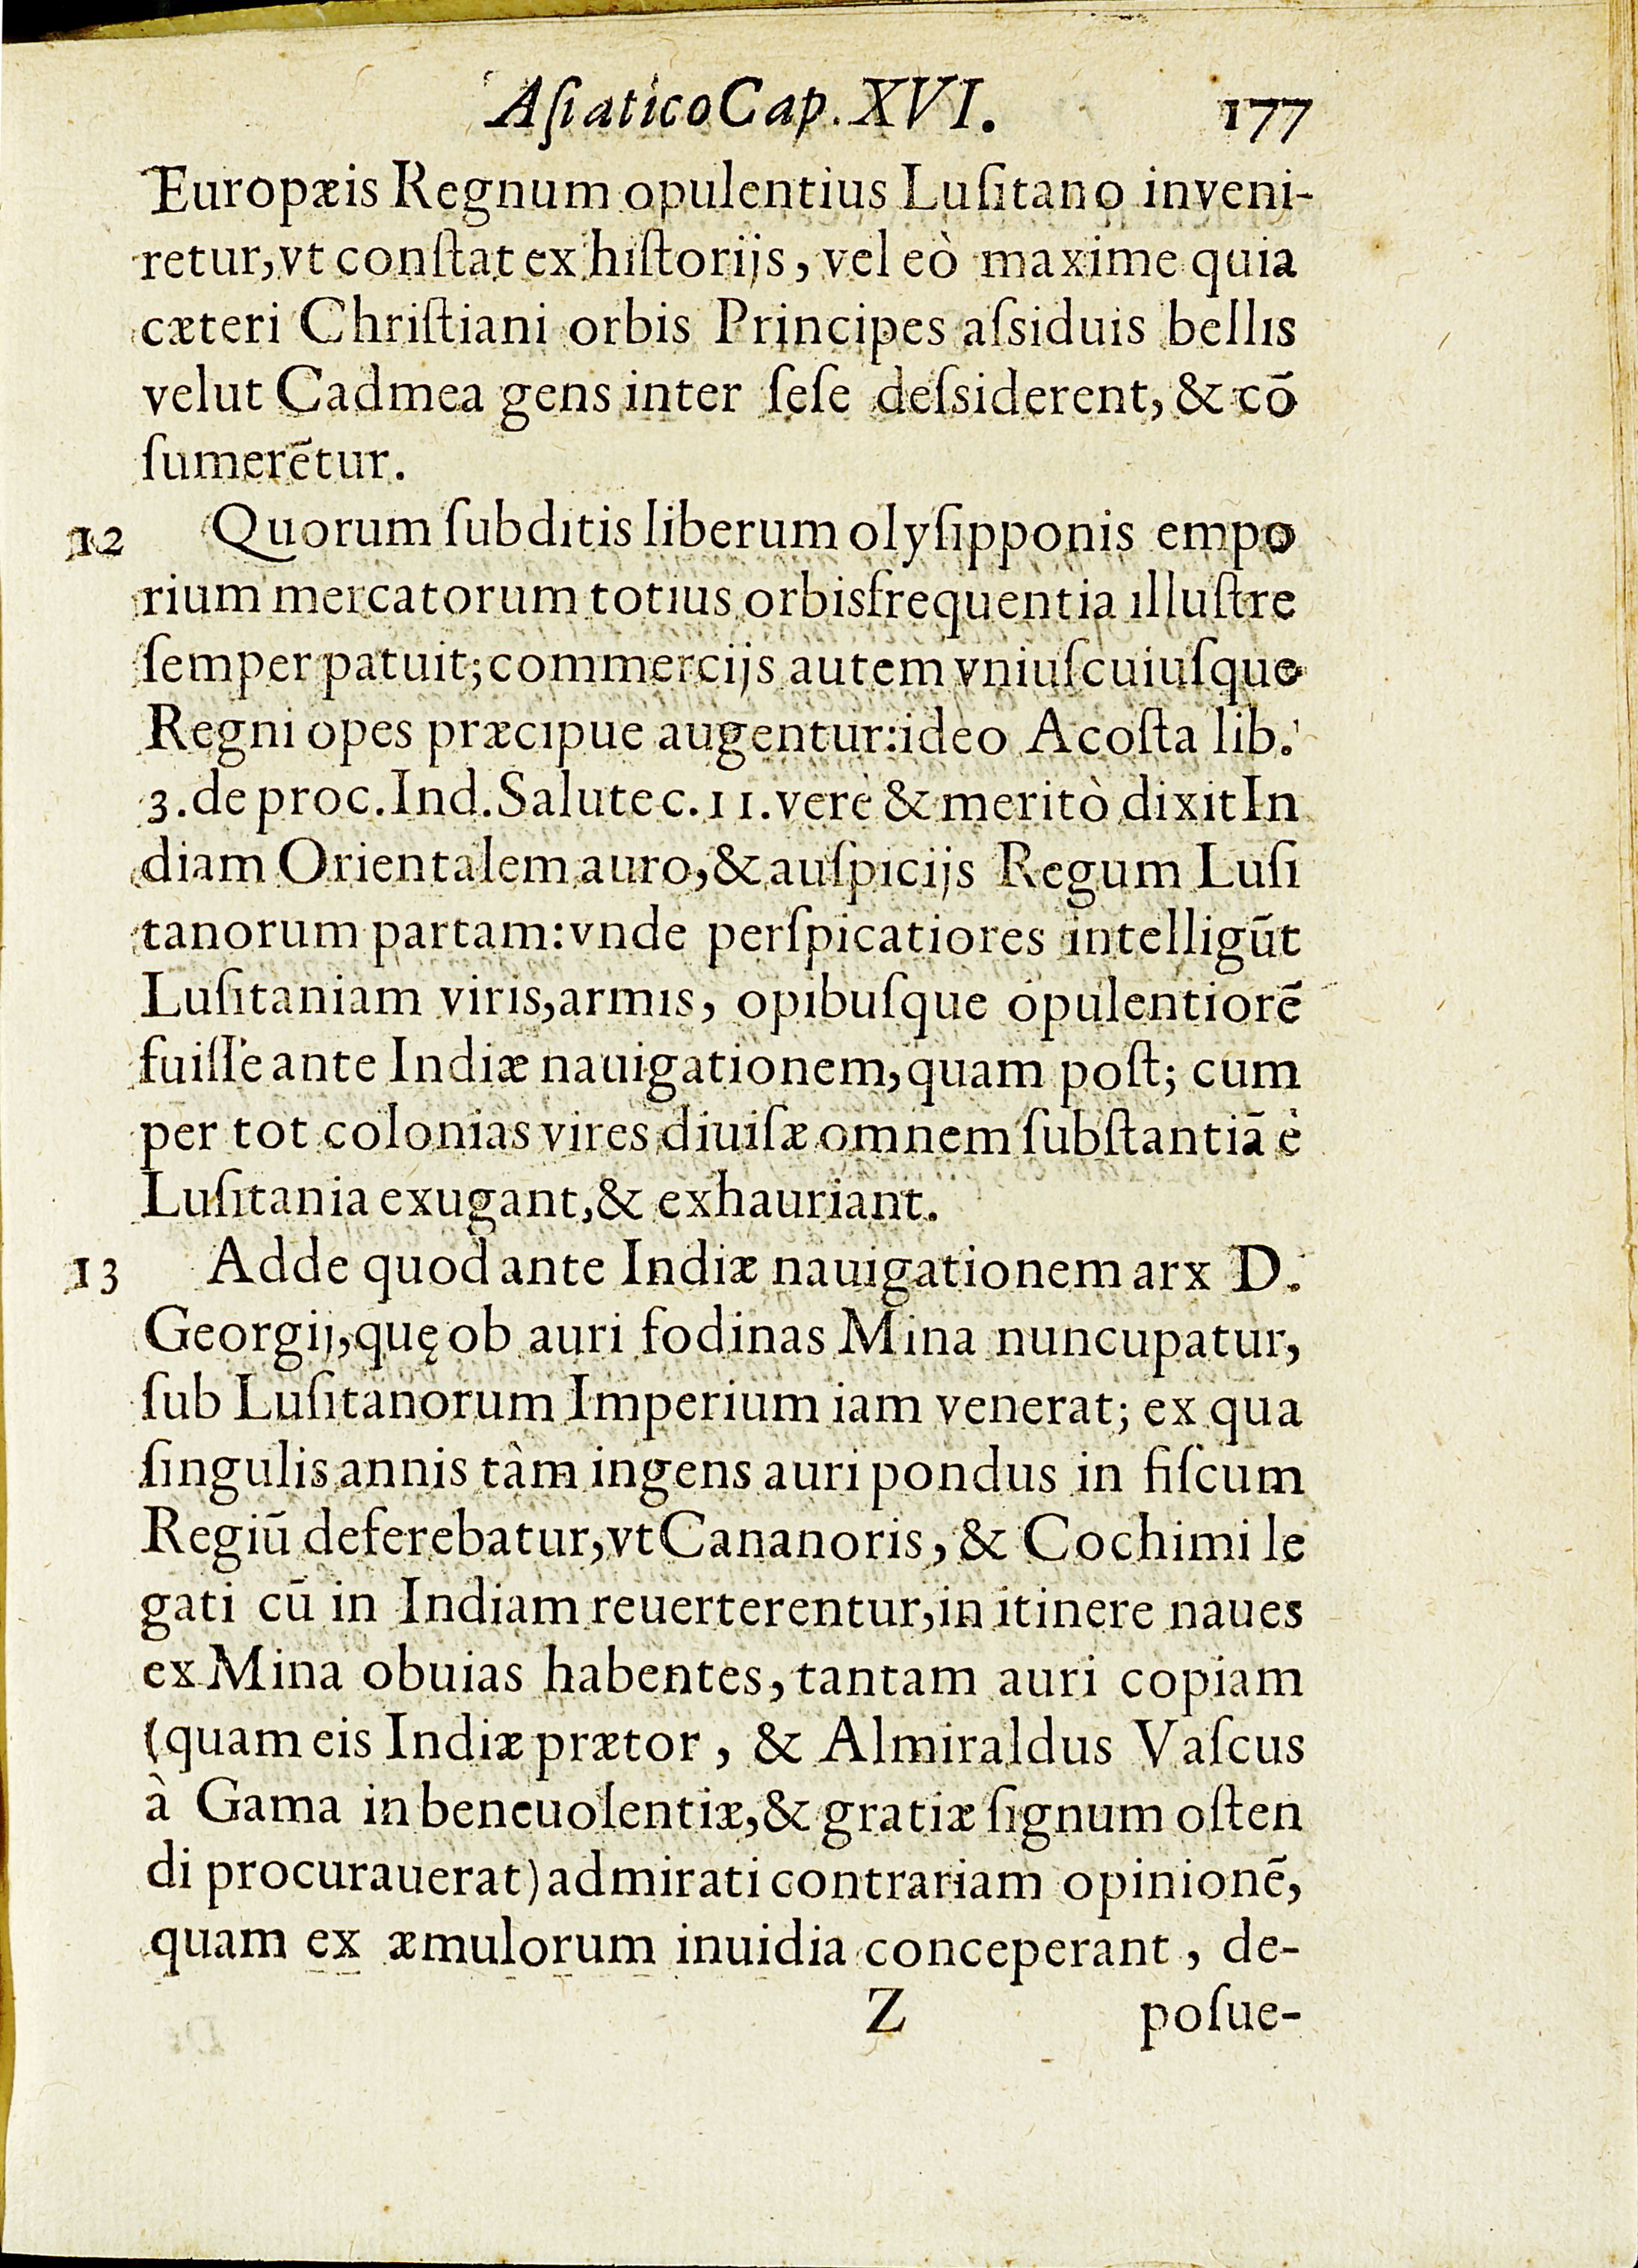 Aſiatico Cap. XVI. 177
Europæis Regnum opulentius Luſitano inveni-
retur, vt conſtat ex hiſtorijs, vel eò maxime quia
cæteri Chriſtiani orbis Principes aſsiduis bellis
velut Cadmea gens inter ſeſe deſsiderent, & cō
ſumerētur.
12 Quorum ſubditis liberum olyſipponis empo
rium mercatorum totius orbis frequentia illuſtre
ſemper patuit; commercijs autem vniuſcuiuſque
Regni opes præcipue augentur: ideo Acoſta lib.
3. de proc. Ind. Salute c. 11. verè & meritò dixit In
diam Orientalem auro, & auſpicijs Regum Luſi
tanorum partam: vnde perſpicatiores intelligūt
Luſitaniam viris, armis, opibuſque opulentiorē
fuiſſe ante Indiæ nauigationem, quam poſt; cum
per tot colonias vires diuiſæ omnem ſubſtantiā è
Luſitania exugant, & exhauriant.
13 Adde quod ante Indiæ nauigationem arx D.
Georgij, quę ob auri fodinas Mina nuncupatur,
ſub Luſitanorum Imperium iam venerat; ex qua
ſingulis annis tàm ingens auri pondus in fiſcum
Regiū deferebatur, vt Cananoris, & Cochimi le
gati cū in Indiam reuerterentur, in itinere naues
ex Mina obuias habentes, tantam auri copiam
(quam eis Indiæ prætor, & Almiraldus Vaſcus
à Gama in beneuolentiæ, & gratiæ ſignum oſten
di procurauerat) admirati contrariam opinionē,
quam ex æmulorum inuidia conceperant, de-
Z poſue-